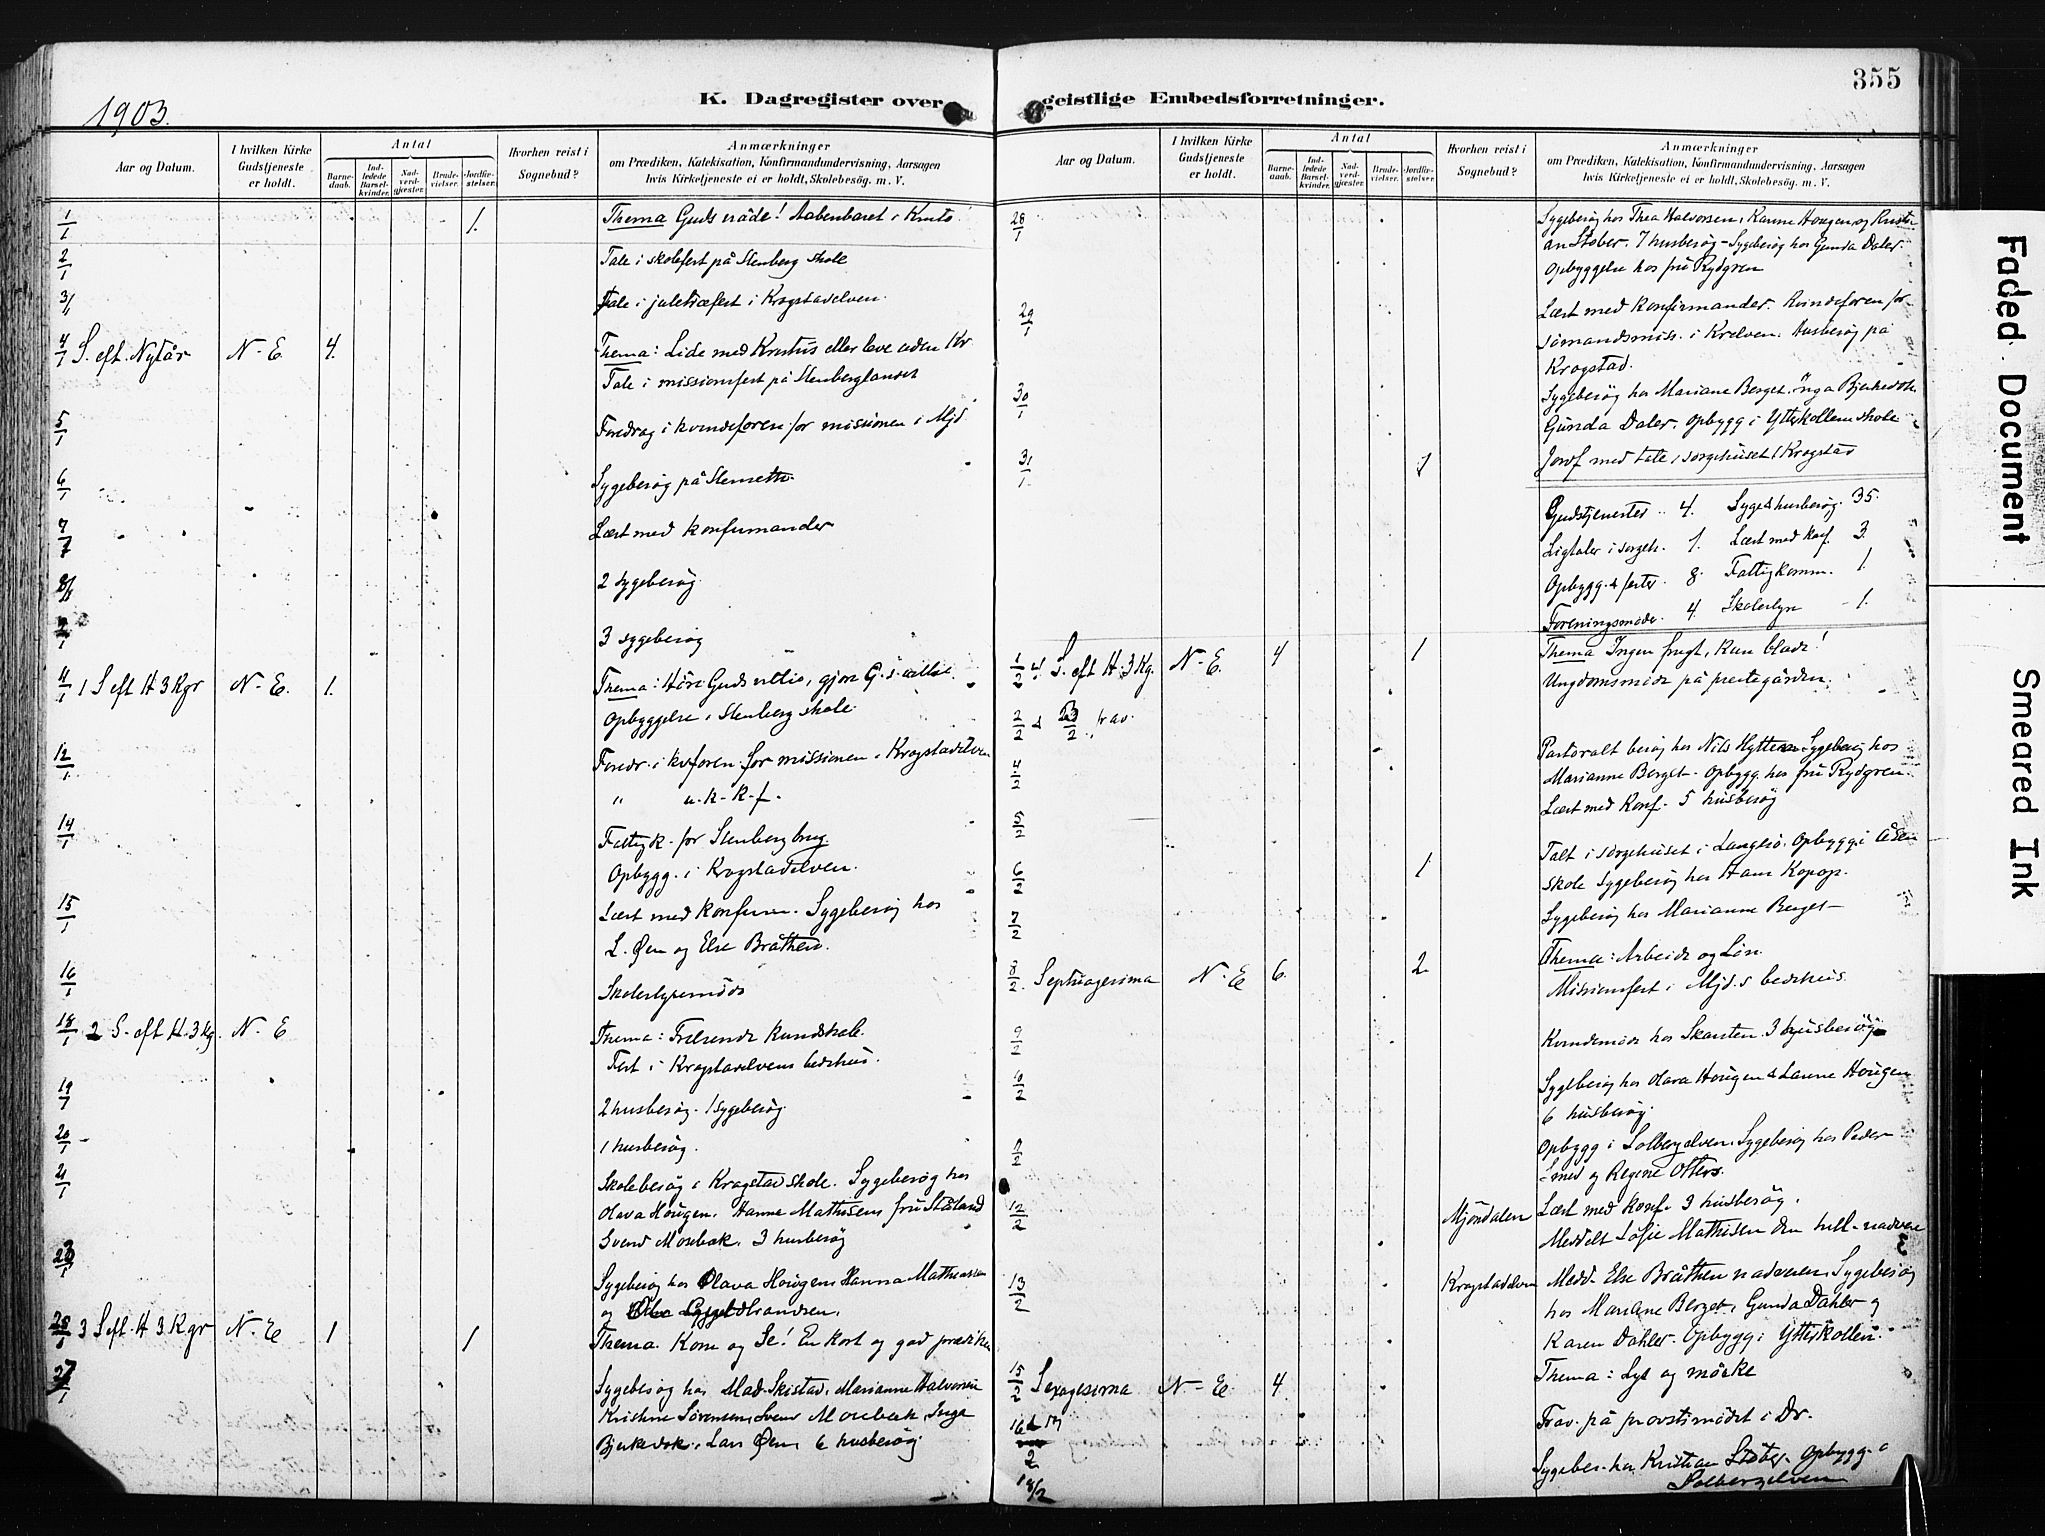 355
1903.
K. Dagregister over geistlige Embedsforretninger.
Aar og Datum.
I hvilken Kirke Gudstjeneste er holdt.
Antal
Barne-daab.
Ind-ledede Barsel-kvinder.
Nad-verd-gjester.
Brude-vielser.
Jordfæ-stelser.
Hvorhen reist i Sognebud?
Anmærkninger
om Prædiken, Katekisation, Konfirmandundervisning, Aarsagen
hvis Kirketjeneste ei er holdt, Skolebesøg. m. V.
1/1 1. Thema Guds nåde! Aabenbaret i Kristo
2/1 Tale i skolefest på Stenberg skole
3/1 Tale i juletræfest i Krogstadelven
4/1 S. eft. Nytår N-E. 4. Thema: Lide med Kristus eller leve uden Kr.
Tale i missionsfest på Stenberglanset
5/1 Foredrag i kvindeforen for missionen i Mjd
6/1 Sygebesøg på
7/1 Læst med konfirmander
8/1 2 sygebesøg.
3 sygebesøg
1 S eft H 3 Kgr N-E. 1. Thema: Høre Guds vilie, gjøre G-s vilie.
Opbyggelse i Stenberg skole
12/1 Foredr. i kvforen for missionen i Krogstadelven
" u-k-k-f.
14/1 Fattigk. for Stenberg brug.
Opbygg. i Krogstadelven.
15/1 Læst med konfirm. Sygebesøg hos
L. Øen og Else Bråthen.
16/1 Skolestyremøde
18/1 2 S. eft H. 3 Kg. N-E Thema: Frelsende kundskab.
Fest i Krogstadelvens bedehus.
19/1 2 husbesøg. 1 sygebesøg.
20/1 1 husbesøg.
21/1 Skolebesøg i Krogstad skole. Sygebesøg hos
Olava Hougen, Hanne Mathisen, fru Ståland
Svend Mosebæk. 3 husbesøg
23/1 Sygebesøg hos Olava Hougen Hanna Mathiassen
og
25/1 3 S eft. H 3 Kgr N-E 1 1 Thema. Kom og Se! En kort og god prædiken
27/1 Sygebesøg hos Mad. Skistad, Marianne Halvorsen
Kristine Sørensen, Svend Mosebæk, Inga
Bjerkedok, Lars Øen, 6 husbesøg.
Aar og Datum.
I hvilken Kirke Gudstjeneste er holdt.
Antal
Barne-daab.
Ind-ledede Barsel-kvinder.
Nad-verd-gjester.
Brude-vielser.
Jordfæ-stelser.
Hvorhen reist i Sognebud?
Anmærkninger
om Prædiken, Katekisation, Konfirmandundervisning, Aarsagen
hvis Kirketjeneste ei er holdt, Skolebesøg. m. V.
28/1 Sygebesøg hos Thea Halvorsen, Karine Hougen og Kristi-
an Stober. 7 husbesøg - Sygebesøg hos Gunda Daler
Opbyggelse hos fru Rydgren
29/1 Læst med konfirmander. Kvindeforen for
sømandsmiss. i Krelven. Husbesøg på
Krogstad.
30/1 Sygebesøg hos Mariane Berget, Inga Bjerkedok
Gunda Daler. Opbygg i Ytterkollens skole
31/1 1 Jordf med tale i sørgehuset i Krogstad
Gudstjenester 4. Syge & husbesøg 35.
Ligtaler i sørgeh. 1. Læst med konf. 3.
Opbygg. & fester 8. Fattigkomm. 1.
Foreningsmøde 4. Skolestyr - 1.
1/2 4. S. eft H. 3 Kg. N-E. 4 1 Thema Ingen frugt, kun blade!
Ungdomsmøde på prestegården.
2/2 & 3/2 frav.
4/2 Pastoralt besøg hos Nils Hytten Sygebesøg hos
Marianne Berget. Opbygg. hos fru Rydgren.
5/2 Læst med konf. 5 husbesøg
6/2 1 Talt i sørgehuset i Langlø. Opbygg i Åsen
skole Sygebesøg hos Hans
7/2 Sygebesøg hos Marianne Berget
8/2 Septuagesima N-E 6. 2 Thema: Arbeide og Løn.
Missionsfest i Mjd.s bedehus.
9/2 Kvindemøde hos Skarsten. 3 husbesøg
10/2 Sygebesøg hos Olava Hougen & Laura Hougen
6 husbesøg.
Opbygg i Solbergelven. Sygebesøg hos Peder
Smed og Regine Otters.
12/2 Mjøndalen Læst med konf. 3 husbesøg.
Meddelt Sofie Mathisen den hell. nadvere
13/2 Krogstadelven Medd. Else Bråthen nadveren, Sygebesøg
hos Mariane Berget, Gunda Dahler og
Karen Dahler. Opbygg i Ytterkollen.
15/2 Sexagesima N-E 4. Thema: Lys og mørke
16 17/2 Frav. på provstimødet i Dr.
18/2 Sygebes. hos Kristian Stober. Opbygg. i
Solbergelven
Faded Document
Smeared Ink